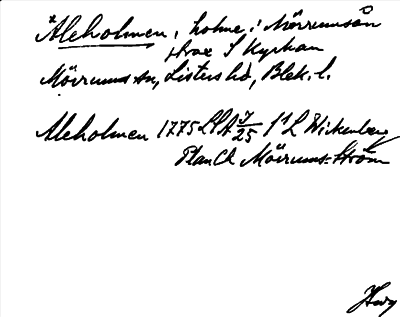 *Aleholmen, holme i Mörrumsån
strax S Kyrkan
Mörrums sn, Listers hd, Blek. l.
Aleholmen 1775 LSA J/25 1:1 L Wikenberg
Plan Ch Mörrums-Ström